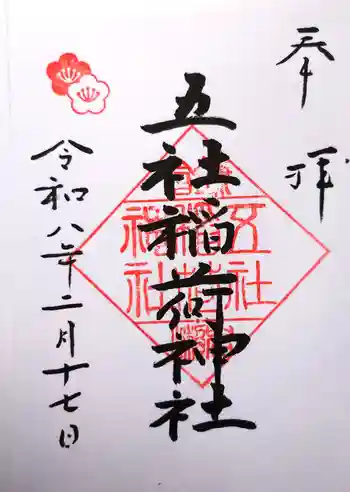 奉拝
五社稲荷神社
令和八年二月十七日